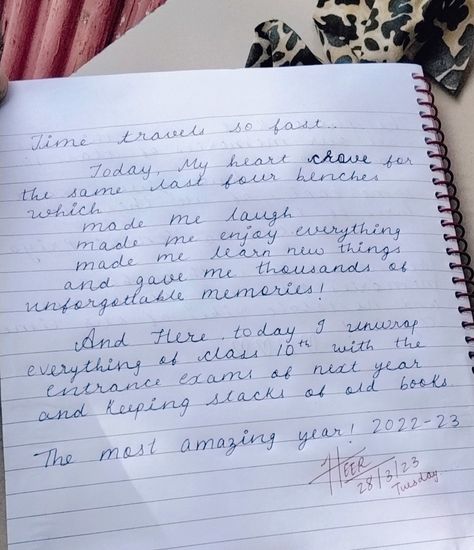 Time travels so fast..
Today, My heart crave for
the same last four benches
which
made me laugh
made me enjoy everything
made me learn new things
and gave me thousands of
unforgottable memories!
And Here, today I unwrap
everything of class 10th with the
entrance exams of next year
and keeping stacks of old books.
The most amazing year! 2022-23
HEER
28/3/23
Tuesday